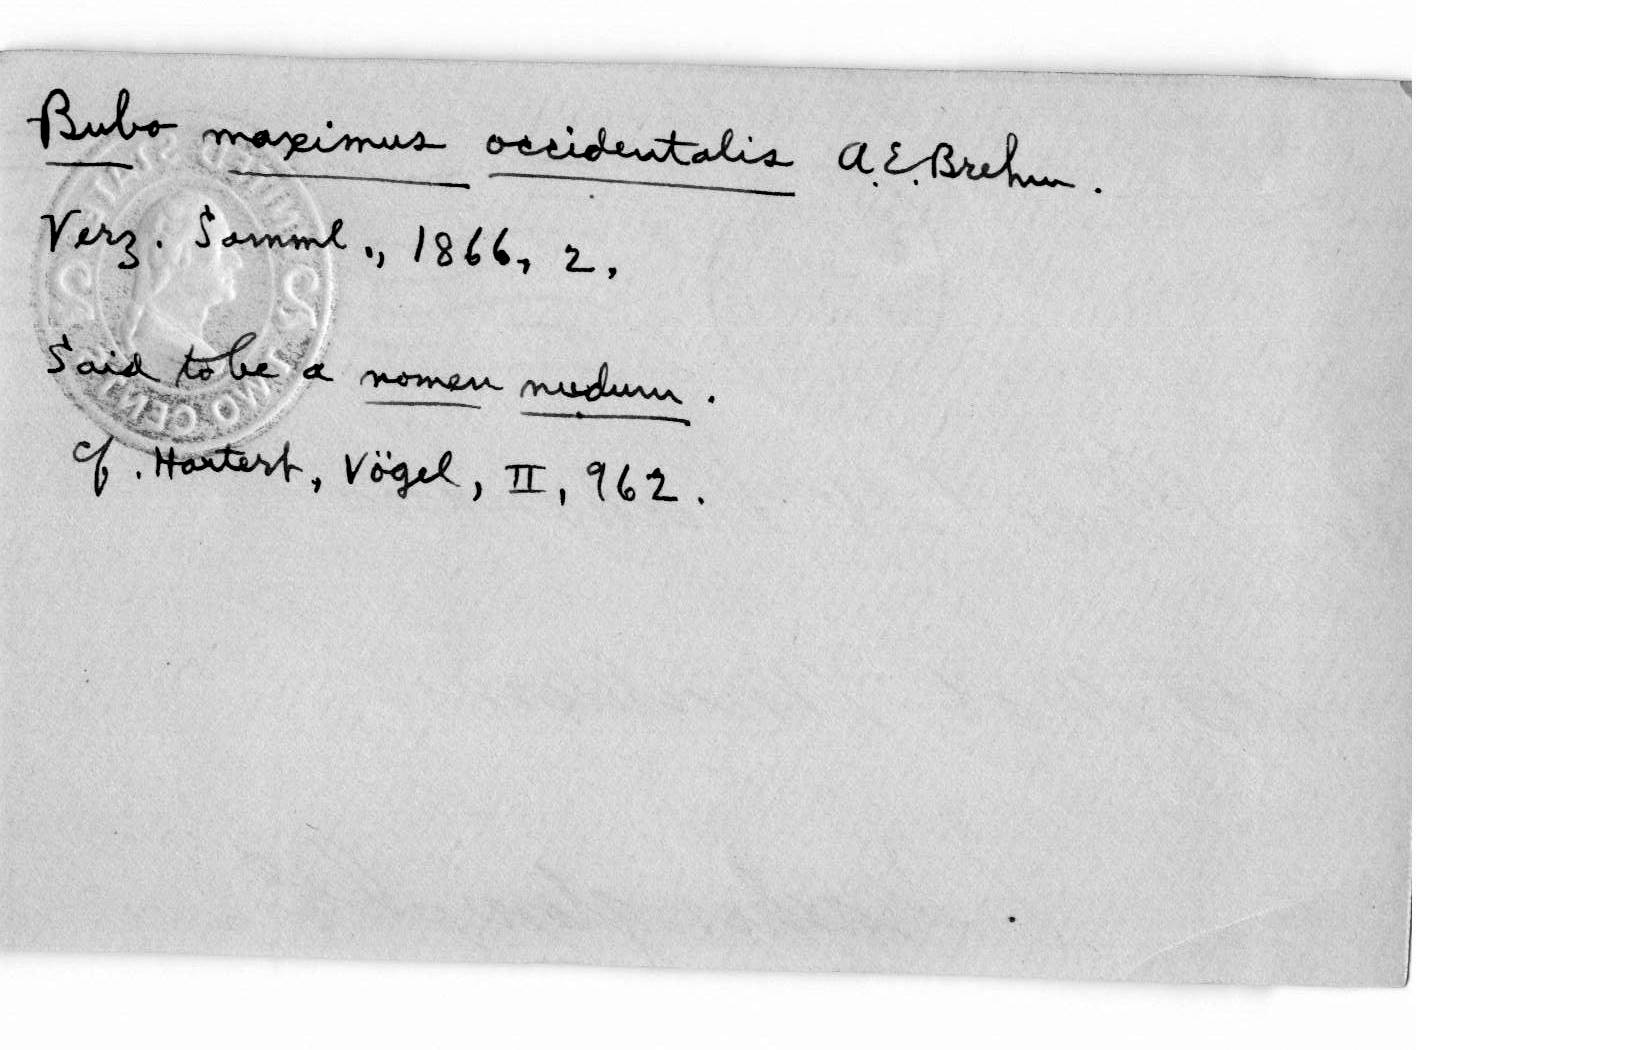 Bubo maximus occidentalis A.E.Brehm.
Verz. Samml., 1866, 2,
Said to be a nomen nudum.
cf. Hartert, Vögel, II, 962.
UNITED STATES
2 2
TWO CENTS